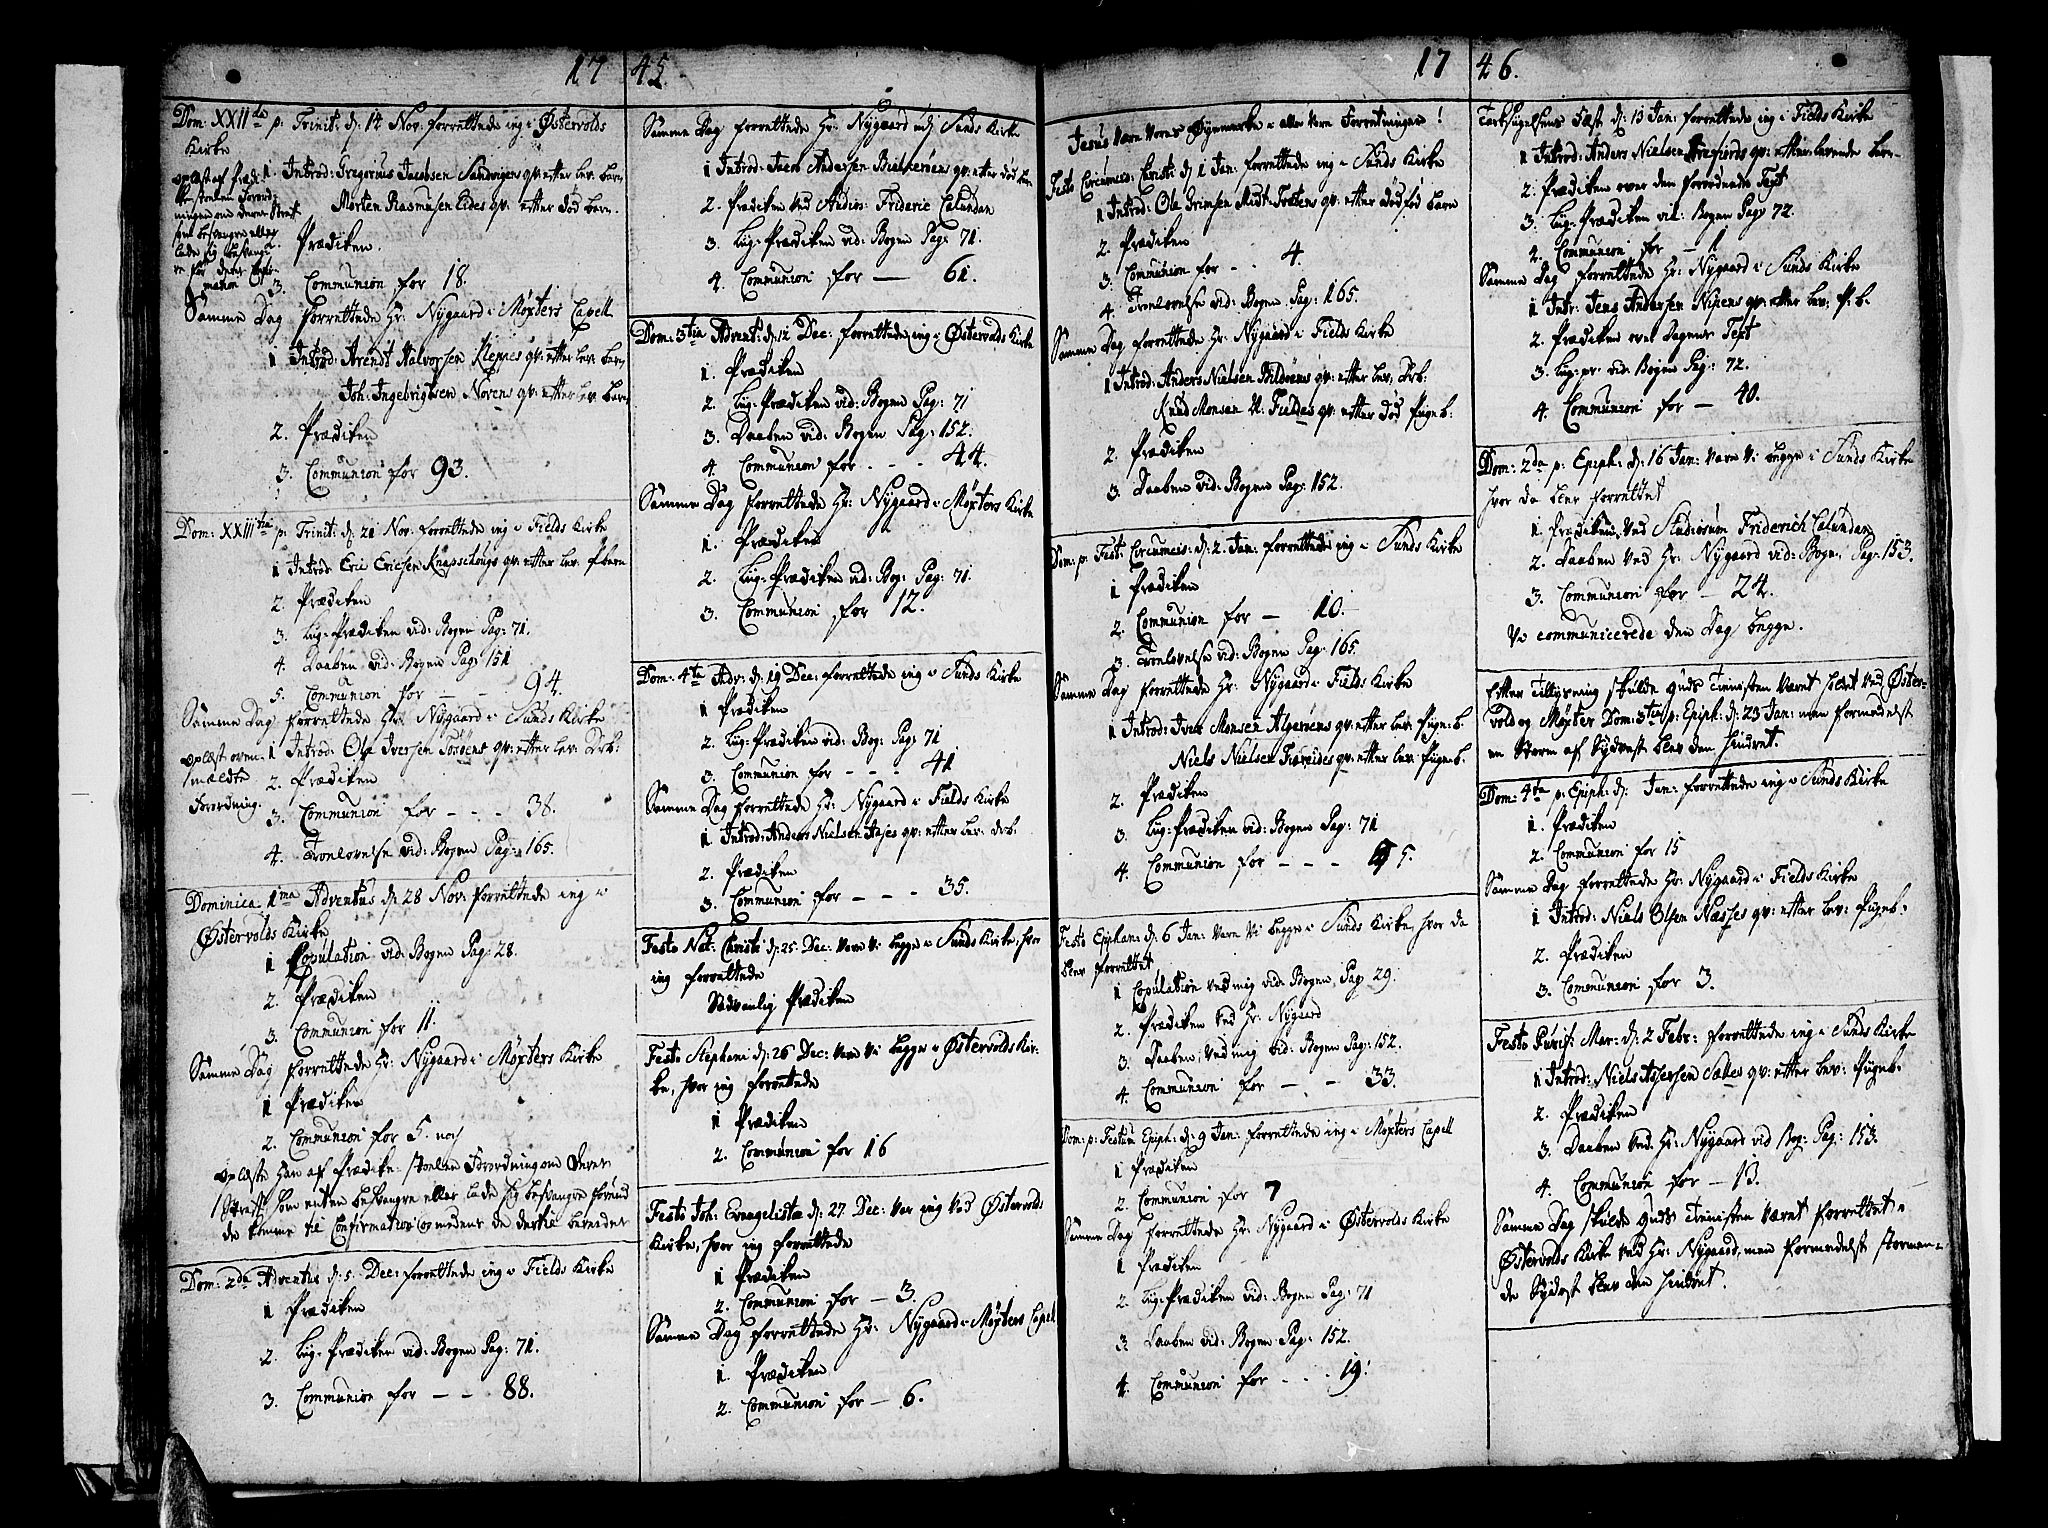 17 45.
Dom: XXIIda p: Trinit: d: 14 Nov: forrettede ieg i Østervolds
Kirke
oplæst af Prædi-
kestoelen Forord-
ningen om deres Straf
som besvangre eller
lade sig besvang-
re før deres Confir-
mation
1 Introd: Gregorius Jacobsen Sandvigen qv: efter lev. barn,
Morten Rasmusen Eides qv: efter død barn.
Prædiken.
3. Communion for 18.
Samme Dag forrettede Hr: Nygaard i Møxters Capell
1 Introd: Arendt Halvorsen Kleppes qv: efter lev. barn,
Joh: Ingebrigtsen Norens qv: efter lev. barn
2. Prædiken
3. Communion for 93.
Dom: XXIIItia p: Trinit: d: 21 Nov: forrettede ieg i Fields Kirke
1 Introd: Eric Ericsen Knapschougs qv: efter lev. P. barn
2. Prædiken
3. Liig-Prædiken vid: Bogen Pag: 71.
4. Daaben vid: Bogen Pag: 151
5. Communion for — - 94.
Samme Dag forrettede Hr: Nygaard i Sunds Kirke
oplæst oven-
mældte
Forordning.
1 Introd: Ole Iversen Toröens qv: efter lev: Drb:
2. Prædiken
3. Communion for - - - 38.
4. Troelovelse vid: Bogen Pag: 165.
Dominica 1ma Adventus d: 28 Nov: forrettede ieg i
Østervolds Kirke
1 Copulation vid: Bogen Pag: 28.
2. Prædiken
3. Communion for 11.
Samme Dag forrettede Hr: Nygaard i Møxters Kirke
1 Prædiken
2. Communion for 5. noch
oplæste han af Prædike-stoelen Forordning om deres
Straff, som enten besvangre eller lade sig besvangre forend
de komme til Confirmation og medens de dertil beredes
Dom: 2da Adventus d: 5 Dec: forrettede ieg i Fields Kirke
1 Prædiken
2. Liig-Prædiken vid: Bogen Pag: 71.
3. Communion for — - 88.
Samme Dag forrettede Hr: Nygaard udj Sunds Kirke
1 Introd: Jacob Andersen qv: efter død barn
2. Prædiken ved Studios: Frideric Calundan
3. Liig-Prædiken vid: Bogen Pag: 71.
4. Communion for — 61.
Dom: 3tia Advent: d: 12 Dec: forrettede ieg i Østervolds Kirke
1. Prædiken
2. Liig-Prædiken vid: Bogen Pag: 71
3. Daaben vid: Bogen Pag: 152.
4. Communion for - - - 44.
Samme Dag forrettede Hr: Nygaard i Møxters Kirke
1. Prædiken
2. Liig-Prædiken vid: Bog: Pag: 71.
3. Communion for 12.
Dom: 4ta Adv: d: 19 Dec: forrettede ieg i Sunds Kirke
1 Prædiken
2. Liig-Prædiken vid: Bog: Pag: 71
3. Communion for - - - 41
Samme Dag forrettede Hr: Nygaard i Fields Kirke
1 Introd: Anders Nielsen qv: efter lev: drb:
2. Prædiken
3. Communion for — - 35.
Festo Nat: Christi d: 25 Dec: vare vi begge i Sunds Kirke, hvor
ieg forrettede
Sædvanlig Prædiken
Festo Stephani d: 26 Dec: vare vi begge i Østervolds Kir-
ke, hvor ieg forrettede
1 Prædiken
2. Communion for 16
Festo Joh: Evangelistæ d: 27 Dec: var ieg ved Østervolds
Kirke, hvor ieg forrettede
1 Prædiken
2. Communion for — 3.
Samme Dag forrettede Hr: Nygaard i Møxters Capel
1. Prædiken
2. Communion for — 6.
17 46.
Jesus være vores Øyemerke i alle vore Forretninger!
Festo Circumcis: Christi d: 1 Jan: forrettede ieg i Sunds Kirke
1 Introd: Ole Grimsen Midt-Trætens qv: efter dødfød barn
2. Prædiken
3. Communion for - - 4.
4. Troelovelse vid: Bogen Pag: 165.
Samme Dag forrettede Hr: Nygaard i Fields Kirke
1 Introd: Anders Nielsen Bildöens qv: efter lev: Drb:
Knud Monsen N: Fieldes qv: efter død Pigeb:
2. Prædiken
3. Daaben vid: Bogen Pag: 152.
Dom: p: Fest: Circumcis: d: 2. Jan: forrettede ieg i Sunds Kirke
1 Prædiken
2. Communion for — 10.
3. Troelovelse vid: Bogen Pag: 165
Samme Dag forrettede Hr: Nygaard i Fields Kirke
1 Introd: Iver Monsen Algeröens qv: efter lev: Pigeb.
Niels Nielsen qv: efter lev: Pigeb.
2. Prædiken
3. Liig-Prædiken vid: Bogen Pag: 71
4. Communion for - - - 5.
Festo Epiphan: d: 6 Jan: vare vi begge i Sunds Kirke, hvor da
blev forrettet
1 Copulation ved mig vid: Bogen Pag 29.
2. Prædiken ved Hr: Nygaard
3. Daaben ved mig vid: Bogen Pag: 152.
4. Communion for — - 33.
Dom: p: Festum Epiph: d: 9 Jan: forrettede ieg i Møxters Capell
1 Prædiken
2. Communion for 7
Samme Dag forrettede Hr: Nygaard i Østervolds Kirke
1 Prædiken
2 Liig-Prædiken vid: Bogen Pag: 71
3 Daaben vid: Bogen Pag: 152.
4. Communion for - - - 19.
Taksigelsens Fæst d: 13 Jan: forrettede ieg i Fields Kirke
1 Introd: Anders Nielsen qv: efter levende barn
2. Prædiken over den forordnede Text
3. Liig-Prædiken vid: Bogen Pag 72.
4. Communion for — 1
Samme Dag forrettede Hr: Nygaard i Sunds Kirke
1 Intr: Jens Andersen qv: efter lev: P. b.
2. Prædiken over Dagens Text
3. Liig-pr: vid: Bogen Pag: 72.
4. Communion for — 40.
Dom: 2da p: Epiph: d: 16 Jan: vare vi begge i Sunds Kirke
hvor da blev forrettet
1. Prædiken ved Studiosum Friderich Calundan
2. Daaben ved Hr: Nygaard vid: Bogen Pag: 153.
3. Communion for — 24.
Vi communicerede den Dag begge.
Efter Tillysning skulde Guds Tienisten været holdt ved Øster-
vold og Møxter Dom: 3tia p: Epiph: d: 23 Jan: men formedelst
en Storm af Sydvest blev den hindret.
Dom: 4ta p: Epiph: d: Jan: forrettede ieg i Sunds Kirke
1. Prædiken
2. Communion for 15
Samme Dag forrettede Hr: Nygaard i Fields Kirke
1 Introd: Niels Olsen Næsses qv: efter lev: Pigeb:
2. Prædiken
3. Communion for 3.
Festo Purif: Mar: d: 2 Febr: forrettede ieg i Sunds Kirke
1 Introd: Niels qv: efter lev: Pigeb.
2. Prædiken
3. Daaben ved Hr: Nygaard vid Bog: Pag: 153.
4. Communion for — 13.
Samme Dag skulde Guds Tienisten været forrettet i
Østervolds Kirke ved Hr: Nygaard, men formedelst stormen-
de Sydost blev den hindret.